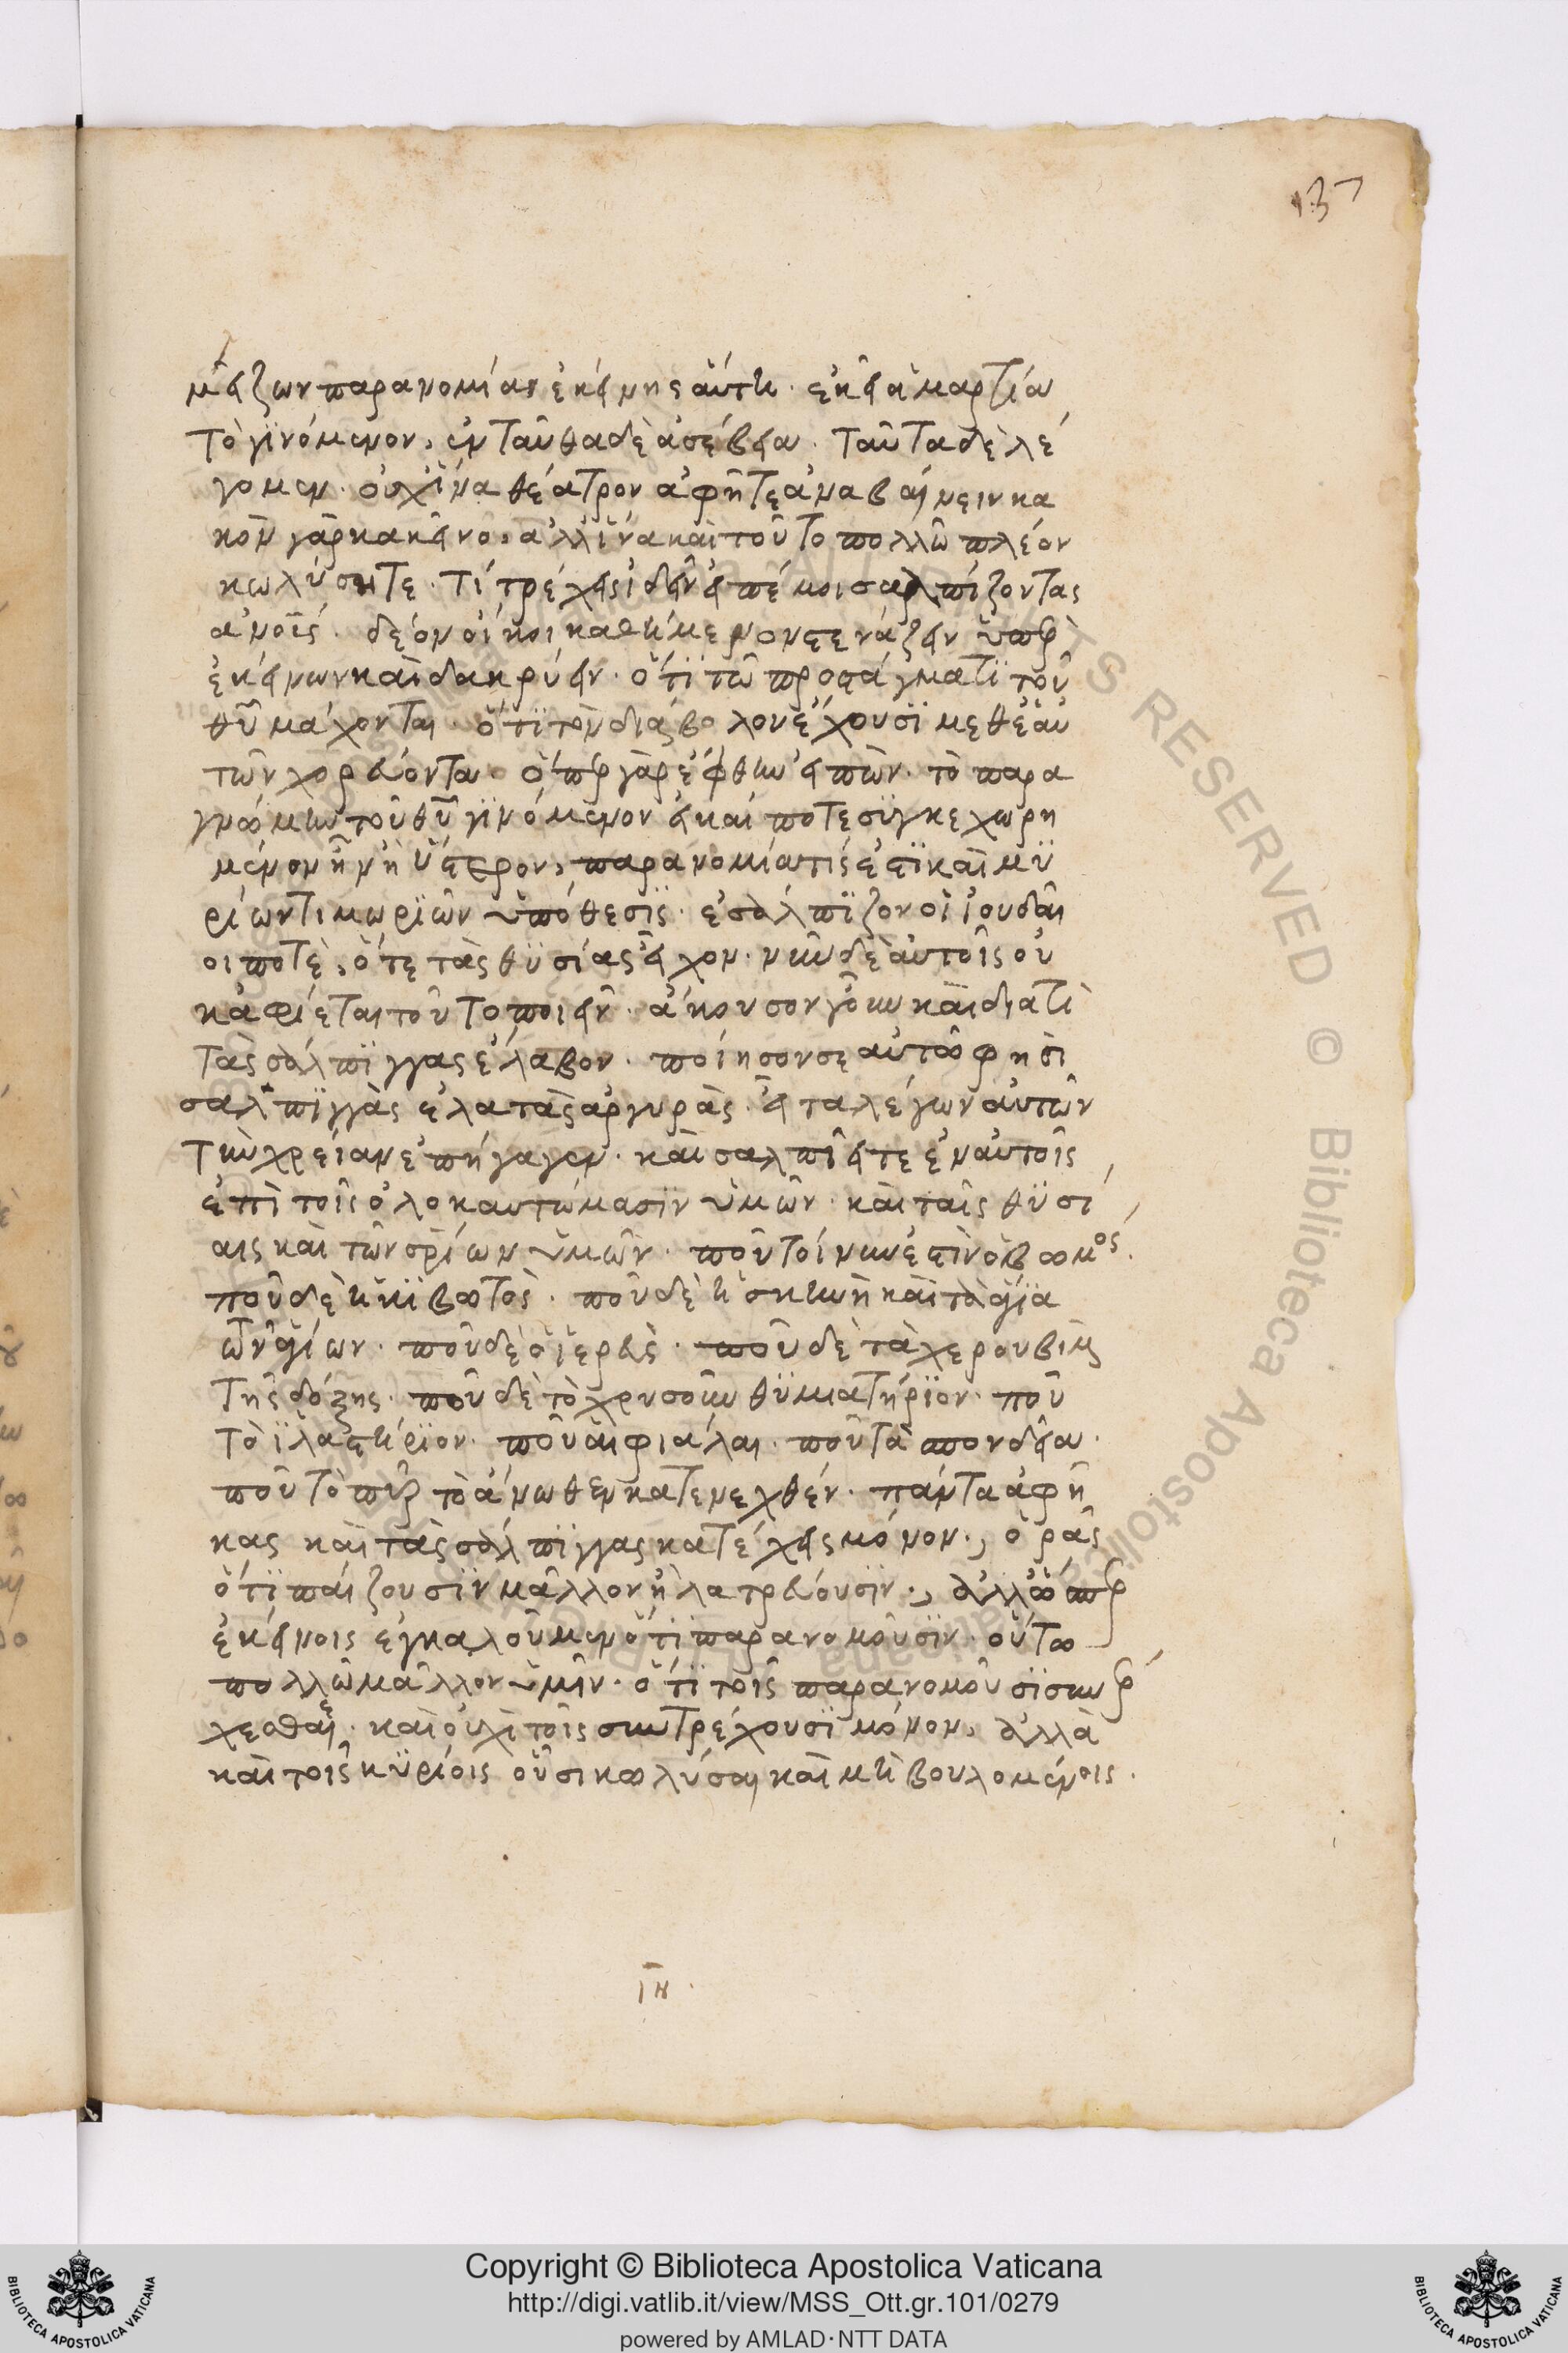 137
μείζων παρανομία ἐκείνης αὕτη· ἐκεῖ ἁμαρτία
τὸ γϊνόμενον, ἐνταῦθα δὲ ἀσέβεια· ταῦτα δὲ λέ
γομεν· οὐχ ἵνα θέατρον ἀφῆτε ἀναβαίνειν κα
κὸν γὰρ κακεῖνο, ἀλλ ἵνα καὶ τοῦτο πολλῶ πλέον
κωλύσητε· τί τρέχεις ἰδεῖν εἰπέ μοι σαλπίζοντας
ἀνοις· δέον οἴκοι καθήμενον στενάζειν ὑπὲρ
ἐκείνων καὶ δακρύειν· ὅτϊ τῶ προστάγματϊ τοῦ
θῦ μάχονται· ὅτϊ τὸν διάβολον ἔχουσϊ μεθ ἑαυ
τῶν χορεύοντα· ὅπερ γὰρ ἔφθην εἰπὼν· τὸ παρα
γνώμην τοῦ θῦ γϊνόμενον εἰ καί ποτε σϋγκεχωρη
μένον ἦν ἢ ὕστερον, παρανομία τίς ἐστϊ καὶ μϋ
ρίων τιμωρϊῶν ὑπόθεσϊς· ἐσάλπϊζον οἱ ἰουδαῖ
οι ποτὲ, ὅτε τὰς θϋσίας εἶχον· νῦν δὲ αὐτοῖς οὐ
κ ἀφίεται τοῦτο ποιεῖν· ἄκουσον γοῦν καὶ διατὶ
τὰς σάλπϊγγας ἔλαβον· ποίησον σεαυτῶ φησὶ
σαλπϊγγὰς ἐλατὰς ἀργυρὰς· εἶτα λέγων αὐτῶν
τὴν χρείαν ἐπήγαγεν· καὶ σαλπϊεῖτε ἐν αὐτοῖς
ἐπὶ τοῖς ὁλοκαυτώμασϊν ὑμῶν· καὶ ταῖς θϋσί
αις καὶ τῶν σρίων ὑμῶν· ποῦ τοίνυν ἐστὶν ὁ βωμος·
ποῦ δὲ ἡ κϊβωτὸς· ποῦ δὲ ἡ σκηνὴ καὶ τὰ ἅγϊα
τῶν ἁγίων· ποῦ δὲ ὁ ἱερεὺς· ποῦ δὲ τὰ χερουβὶμ
τῆς δόξης· ποῦ δὲ τὸ χρυσοῦν θϋμιατήρϊον· ποῦ
τὸ ϊλαστήρϊον· ποῦ αἱ φιάλαι· ποῦ τὰ σπονδεῖα·
ποῦ τὸ πῦρ τὸ ἄνωθεν κατενεχθέν· πάντα ἀφῆ
κας καὶ τὰς σάλπϊγγας κατέχεις μόνον·, ὁρᾶς
ὅτϊ παίζουσϊν μᾶλλον ἢ λατρεύουσϊν·, ἀλλ ὥσπερ
ἐκείνοις ἐγκαλοῦμεν ὅτϊ παρανομοῦσϊν· οὕτω
πολλῶ μᾶλλον ὑμῖν· ὅτϊ τοῖς παρανομοῦσϊ συνέρ
χεσθαι· καὶ οὐχὶ τοῖς συντρέχουσϊ μόνον, ἀλλὰ
καὶ τοῖς κϋρίοις οὖσι κωλύσαι καὶ μὴ βουλομένοις·
ιη·
RIGHTS RESERVED © Biblioteca Apostolica Vaticana
Copyright © Biblioteca Apostolica Vaticana
http://digi.vatlib.it/view/MSS_Ott.gr.101/0279
powered by AMLAD·NTT DATA
BIBLIOTECA APOSTOLICA VATICANA
BIBLIOTECA APOSTOLICA VATICANA